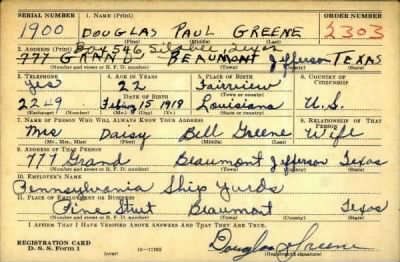 SERIAL NUMBER 1. NAME (Print) ORDER NUMBER
1900 DOUGLAS PAUL GREENE 2303
(First) (Middle) (Last)
2. ADDRESS (Print) Box 546, Silsbee, Texas
777 GRAND BEAUMONT Jefferson TEXAS
(Number and street or R. F. D. number) (Town) (County) (State)
3. TELEPHONE 4. AGE IN YEARS 5. PLACE OF BIRTH 6. COUNTRY OF CITIZENSHIP
yes 22 Fairview
DATE OF BIRTH (Town or county)
2249 15 1918 Louisiana U.S.
(Exchange) (Number) (Mo.) (Day) (Yr.) (State or country)
7. NAME OF PERSON WHO WILL ALWAYS KNOW YOUR ADDRESS 8. RELATIONSHIP OF THAT PERSON
Mrs Daisy Bell Greene Wife
(Mr., Mrs., Miss) (First) (Middle) (Last)
9. ADDRESS OF THAT PERSON
777 Grand Beaumont Jefferson Texas
(Number and street or R. F. D. number) (Town) (County) (State)
10. EMPLOYER'S NAME
Pennsylvania Ship Yards
11. PLACE OF EMPLOYMENT OR BUSINESS
Pine Street Beaumont Texas
(Number and street or R. F. D. number) (Town) (County) (State)
I AFFIRM THAT I HAVE VERIFIED ABOVE ANSWERS AND THAT THEY ARE TRUE.
REGISTRATION CARD
D. S. S. Form 1 (over) 16-17105 Douglas P Greene
(Registrant's signature)